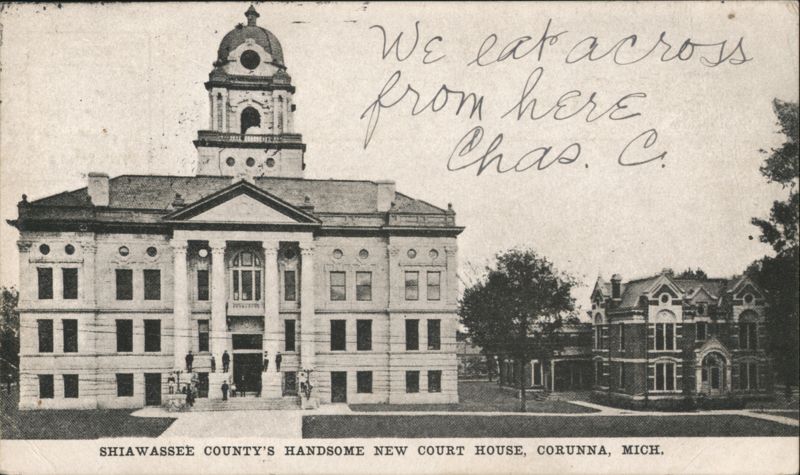 We eat across
from here
Chas. C.
SHIAWASSEE COUNTY'S HANDSOME NEW COURT HOUSE, CORUNNA, MICH.